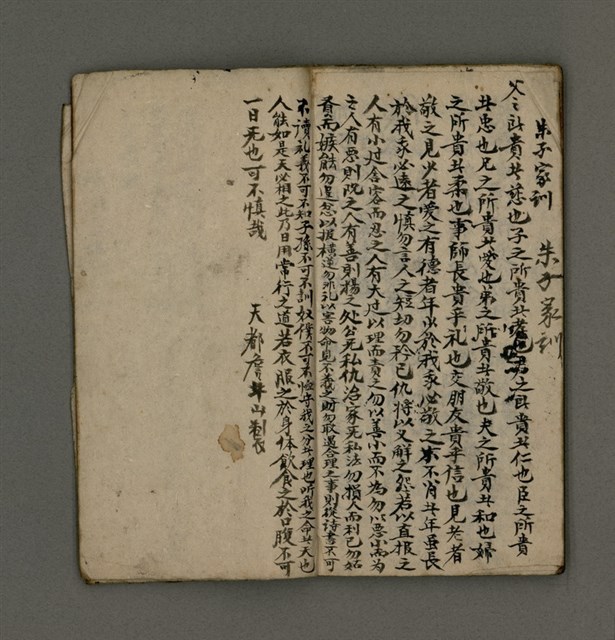 朱子家訓　朱子家訓
父之所貴其慈也子之所貴其孝也君之所貴其仁也臣之所貴
其忠也兄之所貴其愛也弟之所貴其敬也夫之所貴其和也婦
之所貴其柔也事師長貴乎礼也交朋友貴乎信也見老者
敬之見少者愛之有德者年少於我我必敬之不肖其年虽長
於我我必遠之慎勿言人之短切勿矜己仇将以义觧之怨若以直报之
人有小过含容而忍之人有大过以理而責之勿以善小而不為勿以悪小而為
之人有悪則改之人有善則楊之处公无私仇治家无私法勿損人而利己勿妒
而嫉能勿逞忿以报横逆勿非礼以害物命見不義之財勿取遇合理之事則從詩書不可
不讀礼義不可不知子孫不可不訓奴僕不可不恤守我之分其理也听我之命其天也
人能如是天必相之此乃日用常行之道若衣服之於身体飲食之於口腹不可
一日无也可不慎哉
天都